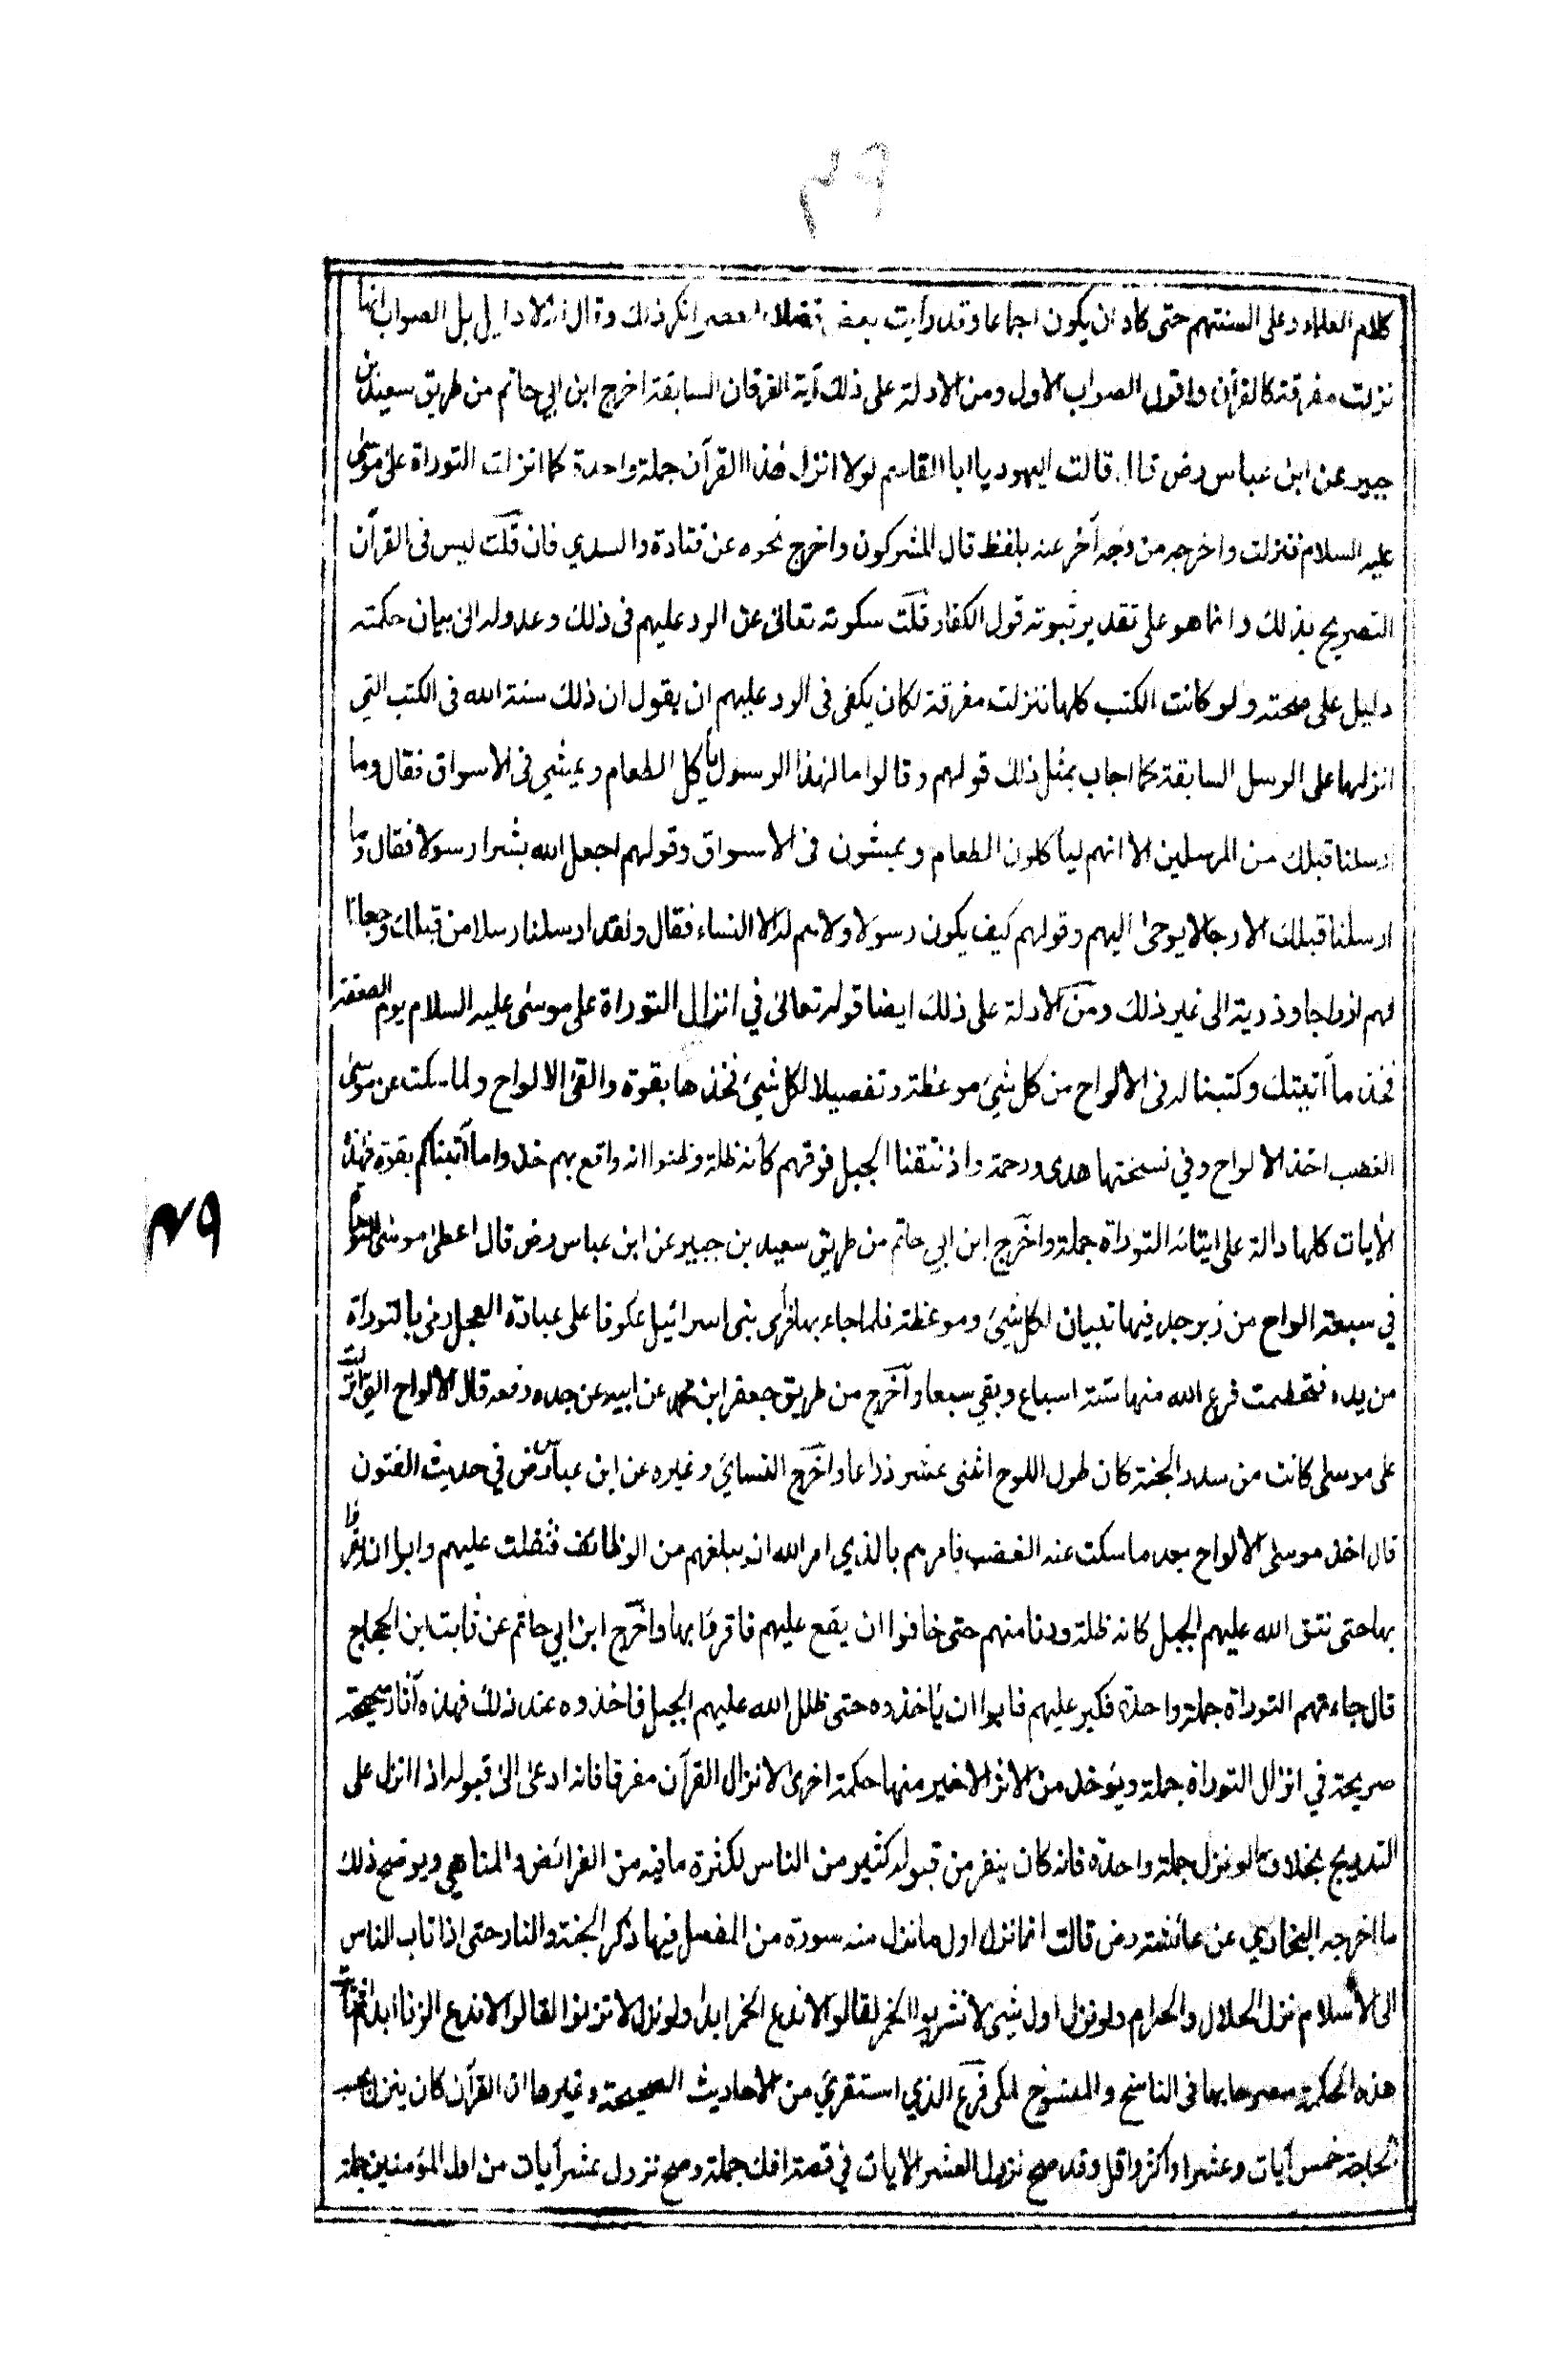 ٤٩
كلام العلماء وعلى السنتهم حتى كاد ان يكون اجماعا وقد رأيت بعض فضلاء العصر انكر ذلك وقال انه لا دليل بل الصواب انها
نزلت مفرقة كالقرآن واقول الصواب الاول ومن الادلة على ذلك آية الفرقان السابقة اخرج ابن ابي حاتم من طريق سعيد بن
جبير عن ابن عباس رض قال قالت اليهود يا ابا القاسم لولا انزل هذا القرآن جملة واحدة كما انزلت التوراة على موسى
عليه السلام فنزلت واخرجه من وجه آخر عنه بلفظ قال المشركون واخرج نحوه عن قتادة والسدي فان قلت ليس فى القرآن
التصريح بذلك وانما هو على تقدير ثبوته قول الكفار قلت سكوته تعالى عن الرد عليهم فى ذلك وعدوله الى بيان حكمته
دليل على صحته ولو كانت الكتب كلها نزلت مفرقة لكان يكفى فى الرد عليهم ان يقول ان ذلك سنة الله فى الكتب التي
انزلها على الرسل السابقة كما اجاب بمثل ذلك قولهم وقالوا ما لهذا الرسول يأكل الطعام ويمشي فى الاسواق فقال وما
ارسلنا قبلك من المرسلين الا انهم ليأكلون الطعام ويمشون فى الاسواق وقولهم ابعث الله بشرا رسولا فقال وما
ارسلنا قبلك الا رجالا يوحى اليهم وقولهم كيف يكون رسولا ولا هم له الا النساء فقال ولقد ارسلنا رسلا من قبلك وجعلنا
لهم ازواجا وذرية الى غير ذلك ومن الادلة على ذلك ايضا قوله تعالى في انزال التوراة على موسى عليه السلام يوم الصعقة
فخذ ما آتيتك وكتبنا له فى الالواح من كل شيء موعظة وتفصيلا لكل شيء فخذها بقوة والقى الالواح ولما سكت عن موسى
الغضب اخذ الالواح وفي نسختها هدى ورحمة واذ نتقنا الجبل فوقهم كأنه ظلة وظنوا انه واقع بهم خذوا ما آتيناكم بقوة فهذه
الآيات كلها دالة على ايتائه التوراة جملة واخرج ابن ابي حاتم من طريق سعيد بن جبير عن ابن عباس رض قال اعطى موسى التوراة
في سبعة الواح من زبرجد فيها تبيان لكل شيء وموعظة فلما جاء بها فرأى بنى اسرائيل عكوفا على عبادة العجل رمى بالتوراة
من يده فتحطمت فرفع الله منها ستة اسباع وبقي سبعا واخرج من طريق جعفر ابن محمد عن ابيه عن جده رفعه قال الالواح التي انزلت
على موسى كانت من سدر الجنة كان طول اللوح اثنى عشر ذراعا واخرج النسائي وغيره عن ابن عباس رض في حديث الفتون
قال اخذ موسى الالواح بعد ما سكت عنه الغضب فامرهم بالذي امر الله ان يبلغهم من الوظائف فثقلت عليهم وابوا ان يقروا
بها حتى نتق الله عليهم الجبل كانه ظلة ودنا منهم حتى خافوا ان يقع عليهم فاقروا بها واخرج ابن ابي حاتم عن ثابت ابن الحجاج
قال جاءتهم التوراة جملة واحدة فكبر عليهم فابوا ان ياخذوه حتى ظلل الله عليهم الجبل فاخذوه عند ذلك فهذه آثار صحيحة
صريحة في انزال التوراة جملة ويؤخذ من الاثر الاخير منها حكمة اخرى لانزال القرآن مفرقا فانه ادعى الى قبوله اذا انزل على
التدريج بخلاف ما لو نزل جملة واحدة فانه كان ينفر من قبوله كثير من الناس لكثرة ما فيه من الفرائض والمناهي ويوضح ذلك
ما اخرجه البخاري عن عائشة رض قالت انما نزل اول ما نزل منه سورة من المفصل فيها ذكر الجنة والنار حتى اذا تاب الناس
الى الاسلام نزل الحلال والحرام ولو نزل اول شيء لا تشربوا الخمر لقالوا لا ندع الخمر ابدا ولو نزل لا تزنوا لقالوا لا ندع الزنا ابدا ثم رأيت
هذه الحكمة مصرحا بها فى الناسخ والمنسوخ لمكى فرع الذي استقري من الاحاديث الصحيحة وغيرها ان القرآن كان ينزل بحسب
الحاجة خمس آيات وعشرا واكثر واقل وقد صح نزول العشر الآيات في قصة افك جملة وصح نزول عشر آيات من اول المؤمنين جملة
٤٩